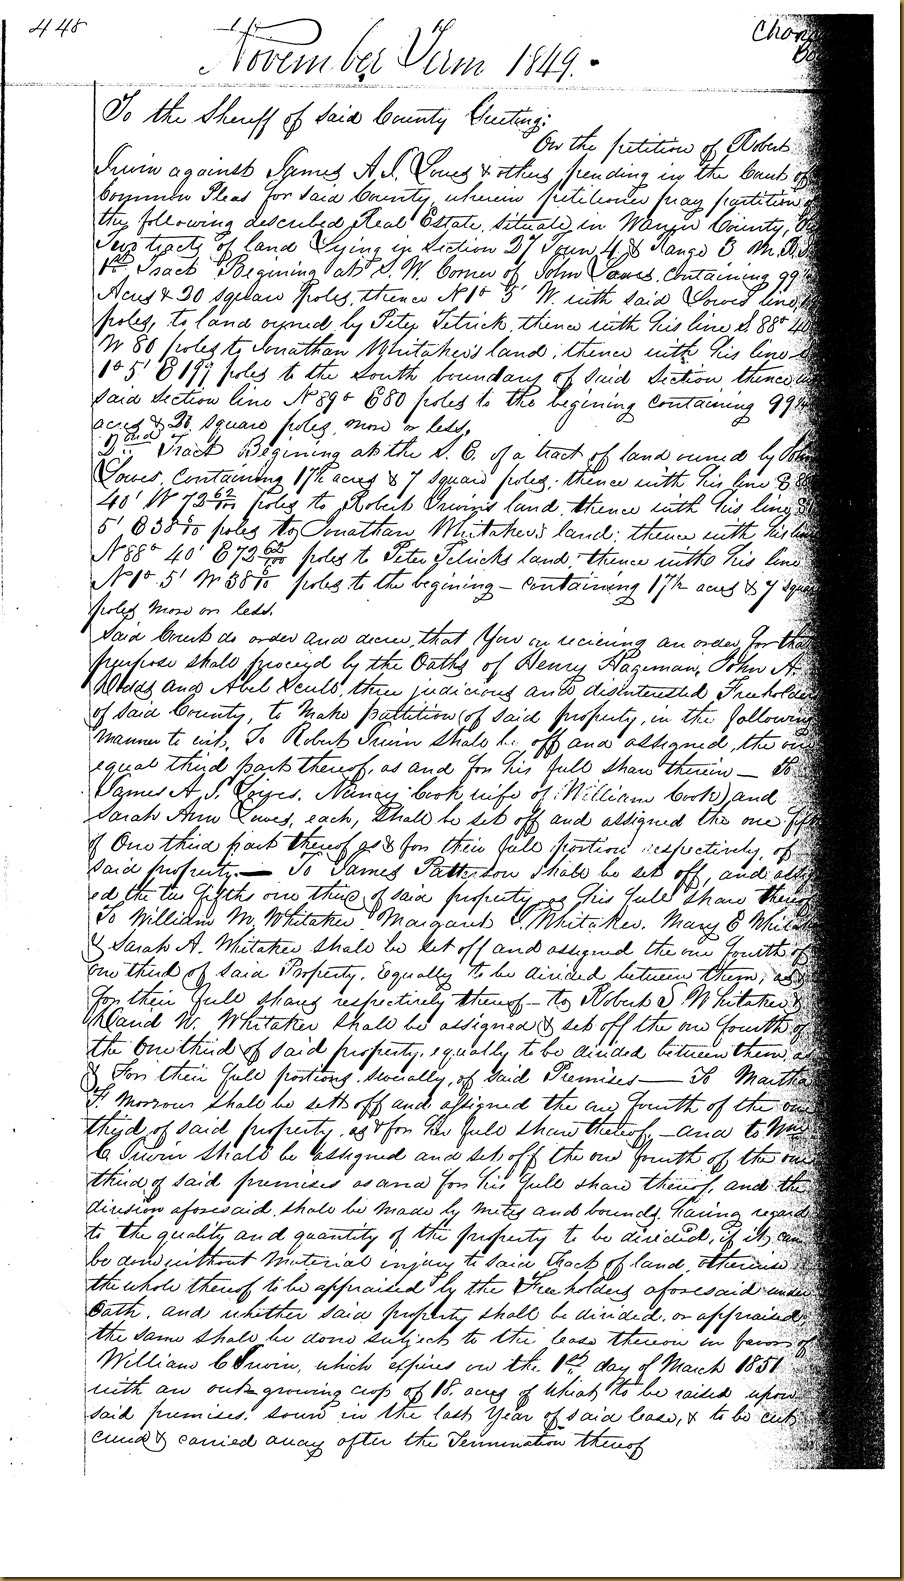 448
Chan
Bo
November Term 1849.
To the Sheriff of said County Greeting:
On the petition of Robert
Irwin against James A. S. Lowes & others pending in the Court of
Common Pleas for said County, wherein petitioner pray partition of
the following described Real Estate, situate in Warren County,
Two tracts of land Lying in Section 27 Town 4 & Range 3 M. R. S.
1st Tract Begining at S. W. Corner of John Lowes, containing 99
Acres & 20 square poles, thence N 1° 5' W. with said Lowes line,
poles, to land owned by Peter Tetrick, thence with his line S. 88° 40
W 80 poles to Jonathan Whitaker's land; thence with his line
1° 5' E 199 poles to the South boundary of said Section thence
said section line N 89° E 80 poles to the begining containing 99
acres & 20 square poles, more or less.
2nd Tract Begining at the S. E. of a tract of land owned by John
Lowes, containing 17½ acres & 7 square poles; thence with his line S 88
40' W 72 62/100 poles to Robert Irwin's land, thence with his line, S
5' E 38 6/10 poles to Jonathan Whitaker's land; thence with his line
N 88° 40' E 72 62/100 poles to Peter Tetricks land; thence with his line
N 1° 5' W 38 6/10 poles to the begining — containing 17½ acres & 7 square
poles more or less.
Said Court do order and decree, that You on recieving an order for that
purpose shall proceed by the Oaths of Henry Hageman, John A.
Dodds and Abel Scull, three judicious and disinterested Freeholders
of said County, to make partition of said property, in the following
manner to wit, To Robert Irwin shall be off and assigned, the one
equal third part thereof, as and for his full share therein — To
James A. S. Lowes, Nancy Cook wife of (William Cook) and
Sarah Ann Lowes, each, shall be set off and assigned the one fifth
of One third part thereof as & for their full portion respectively, of
said property. — To James Patterson shall be set off, and assign
ed the two fifths one third of said property as his full share thereof
To William M. Whitaker, Margaret S. Whitaker, Mary E Whitaker
& Sarah A. Whitaker shall be set off and assigned the one fourth of
one third of said Property. Equally to be divided between them, as &
for their full shares respectively thereof — to Robert S Whitaker &
David W. Whitaker shall be assigned & set off the one fourth of
the One third of said property, equally to be divided between them as
& For their full portions, severally, of said Premises — To Martha
F. Morrow shall be sett off and assigned the one fourth of the one
third of said property, as & for her full share thereof, — and to Wm
C Irwin shall be assigned and set off the one fourth of the one
third of said premises as and for his full share thereof, and the
division aforesaid, shall be made by metes and bounds, having regard
to the quality and quantity of the property to be divided, if it can
be done without material injury to said tract of land, otherwise
the whole thereof to be appraised by the Freeholders aforesaid under
Oath, and whether said property shall be divided, or appraised
the same shall be done subject to the lease thereon in favor of
William C Irwin, which expires on the 1st day of March 1851
with an out growing crop of 18 acres of wheat to be raised upon
said premises, sown in the last Year of said lease, & to be cut
cured & carried away after the Termination thereof